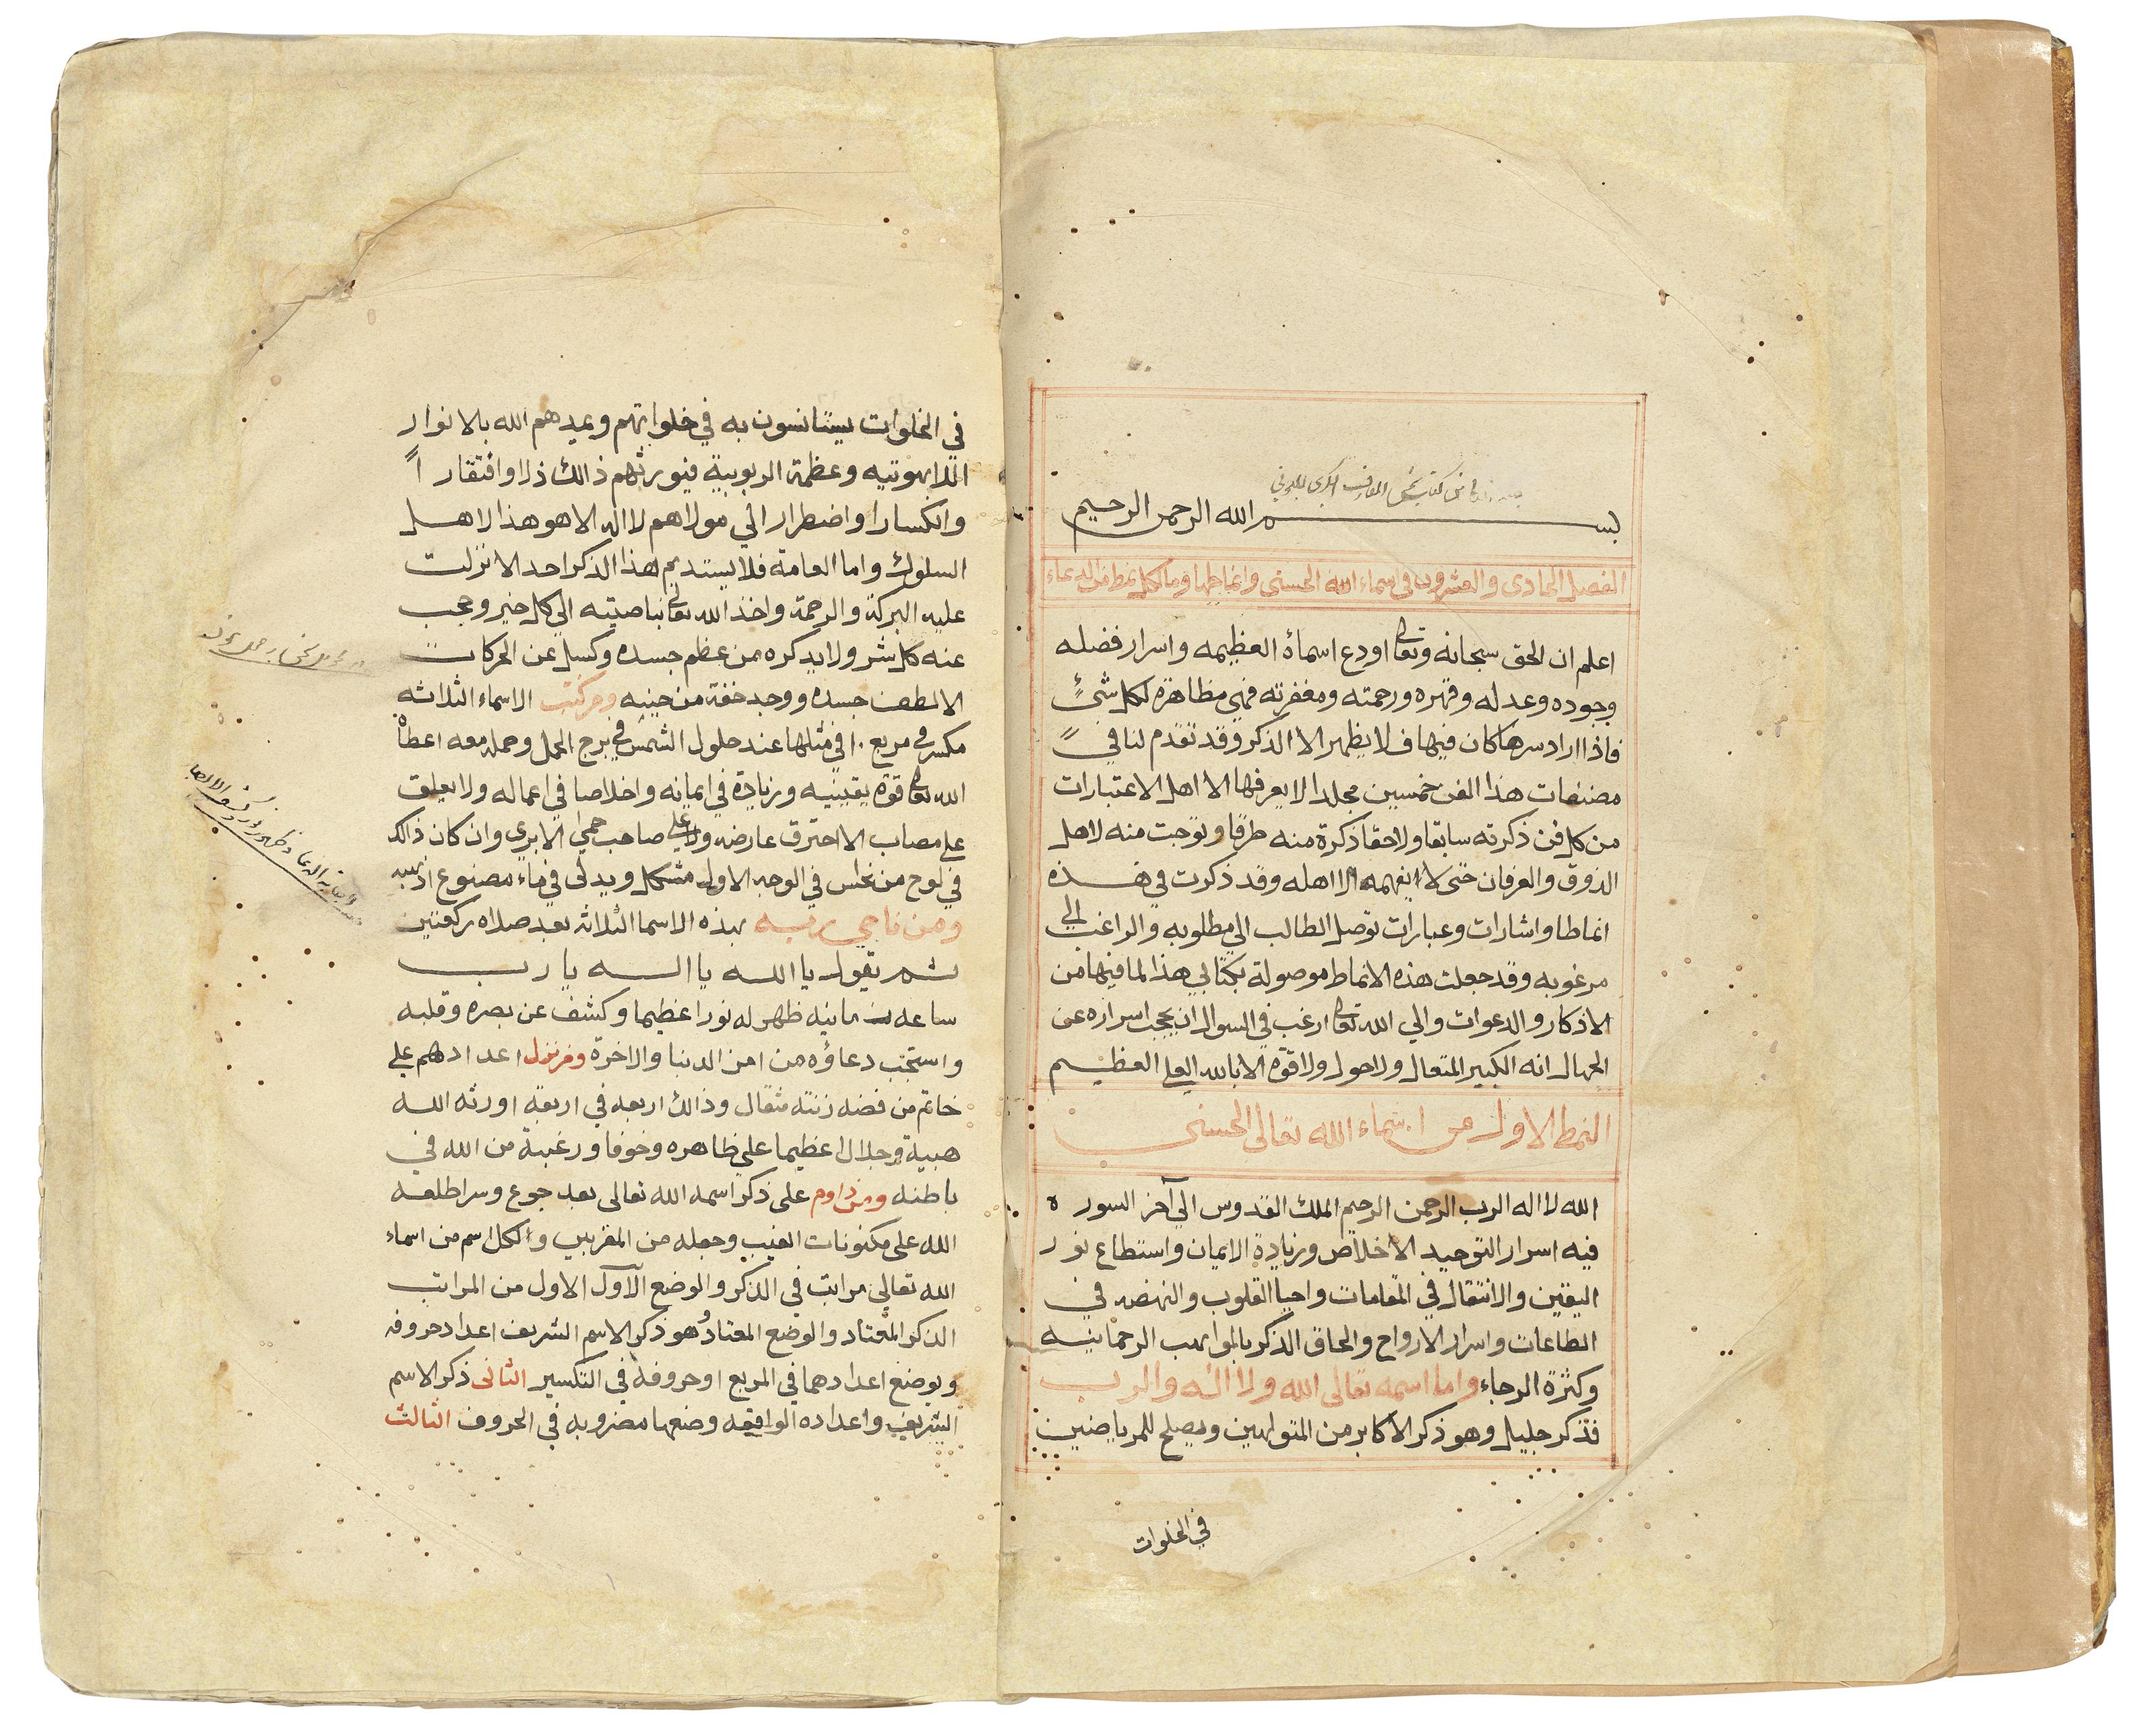 من كتاب شمس المعارف الكبرى للبوني
بسم الله الرحمن الرحيم
الفصل الحادى والعشرون فى اسماء الله الحسنى وانماطها وما لكل نمط من الدعاء
اعلم ان الحق سبحانه وتعالى اودع اسماءه العظيمه واسرار فضله
وجوده وعدله وقهره ورحمته ومغفرته فهي مظاهرة لكل شئ
فاذا اراد سرها كان فيها فلا يظهر الا الذكر وقد تقدم لنا في
مصنفات هذا الفن خمسين مجلدا لا يعرفها الا اهل الاعتبارات
من كل فن ذكرته سابقا ولاحقا ذكرة منه طرفا وتوجت منه لاهل
الذوق والعرفان حتى لا يفهمه الا اهله وقد ذكرت في هذه
انماطا واشارات وعبارات توصل الطالب الي مطلوبه والراغب الي
مرغوبه وقد جعلت هذه الانماط موصولة بكتابي هذا لما فيها من
الاذكار والدعوات والي الله تعالى ارغب في السوال ان يحجب اسراره عن
الجهال انه الكبير المتعال ولا حول ولا قوة الا بالله العلي العظيم
النمط الاول من اسماء الله تعالى الحسنى
الله لا اله الرب الرحمن الرحيم الملك القدوس الي آخر السوره
فيه اسرار التوحيد الاخلاص وزيادة الايمان واستطاع نور
اليقين والانتقال في المقامات واحيا القلوب والنهضه في
الطاعات واسرار الارواح والحاق الذكر بالمواهب الرحمانيه
وكثرة الرجاء واما اسمه تعالى الله ولا اله والرب
فذكر جليل وهو ذكر الاكابر من المتولهين ويصلح للمرياضين
في الخلوات
في الخلوات يستانسون به في خلواتهم ويمدهم الله بالانوار
اللاهوتيه وعظمة الربوبية فيورثهم ذالك ذلا وافتقارا
وانكسارا واضطرارا الي مولاهم لا اله الا هو هذا لاهل
السلوك واما العامة فلا يستديم هذا الذكر احد الا نزلت
عليه البركة والرحمة واخذ الله تعالى بناصيته الي كل خير وحجب
عنه كل شر ولا يدكره من عظم جسده وكسل عن الحركات
الا لطف جسده ووجد خفة من حينه ومن كتب الاسماء الثلاثه
مكسر في مربع ١٠ في مثلها عند حلول الشمس في برج الحمل وحمله معه اعطاه
الله تعالى قوة يقينيه وزيادة في ايمانه واخلاصا في اعماله ولا يعلق
علي مصاب الا احترق عارضه ولا علي صاحب حمي الا بري وان كان ذالك
في لوح من نحاس في الوجه الاول مشكل ويدلى في ماء مصنوع
ومن ناجى ربه بهذه الاسما الثلاثه بعد صلاه ركعتين
ثم يقول يا الله يا اله يا رب
ساعه زمانيه ظهر له نورا عظيما وكشف عن بصره وقلبه
واستجب دعاؤه من امر الدنيا والاخرة ومن نزل اعدادهم علي
خاتم من فضه زنته مثقال وذالك اربعه في اربعة اورثه الله
هيبة وجلالا عظيما على ظاهره وخوفا ورغبة من الله في
باطنه ومن داوم على ذكر اسمه الله تعالى بعد جوع وسر اطلعه
الله على مكنونات الغيب وجعله من المقربين ولكل اسم من اسماء
الله تعالي مراتب في الذكر والوضع الآول الاول من المراتب
الذكر المعتاد والوضع المعتاد وهو ذكر الاسم الشريف اعداد حروفه
ويوضع اعدادهما في المربع او حروفه في التكسير الثانى ذكر الاسم
الشريف واعداده الواقعه وضعها مضروبه في الحروف الثالث